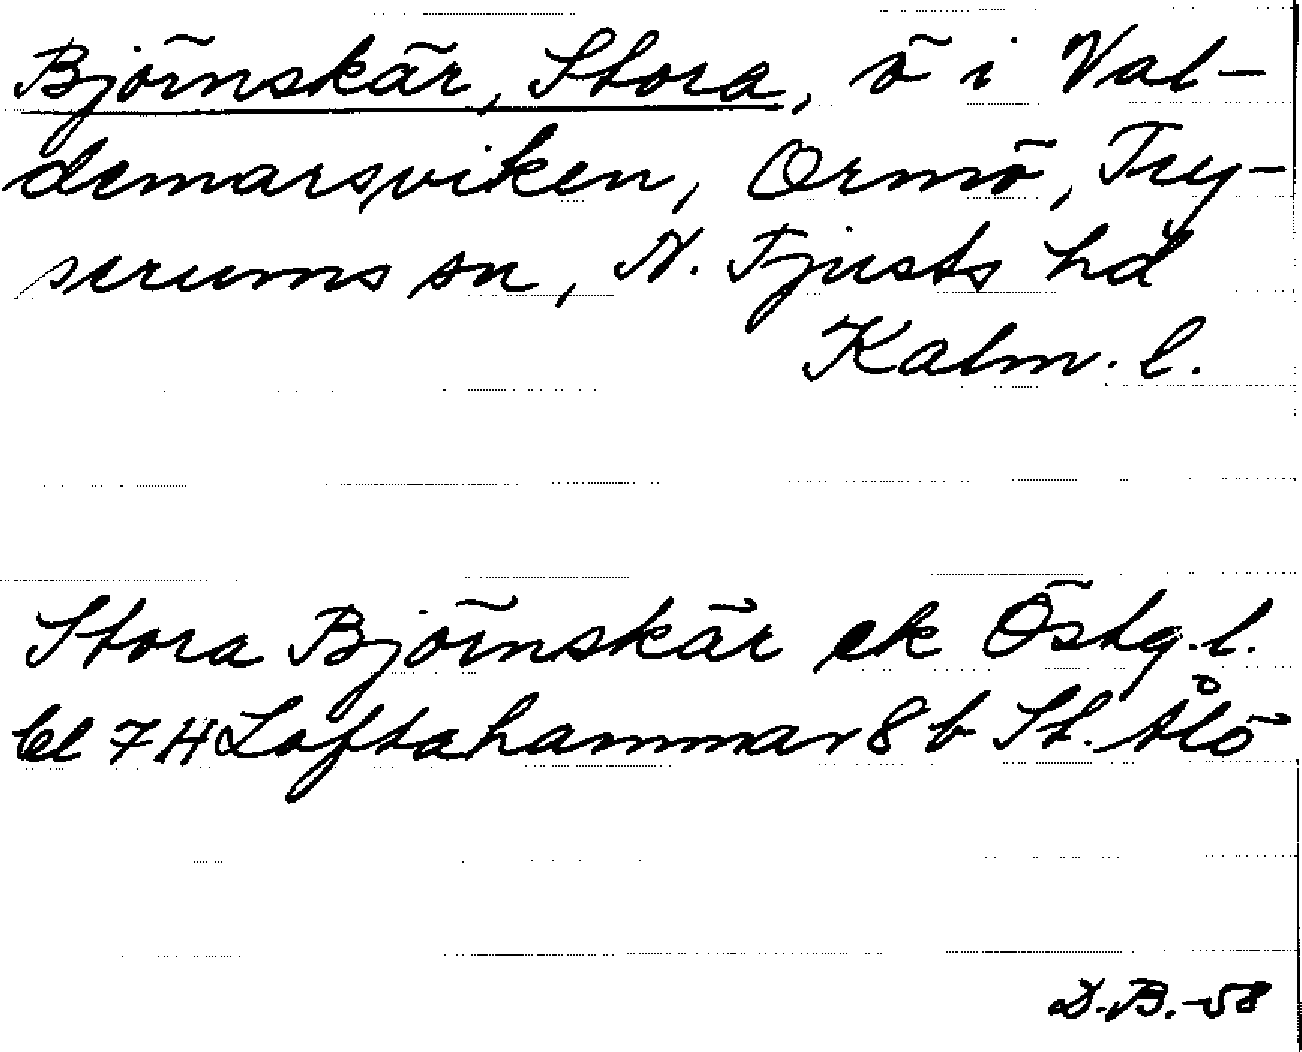 Björnskär, Stora, ö i Val-
demarsviken, Ormö, Try-
serums sn, N. Tjusts hd
Kalm. l.
Stora Björnskär ek Östg. l.
bl 7 H Loftahammar 8 b St. Ålö
D.B.-58